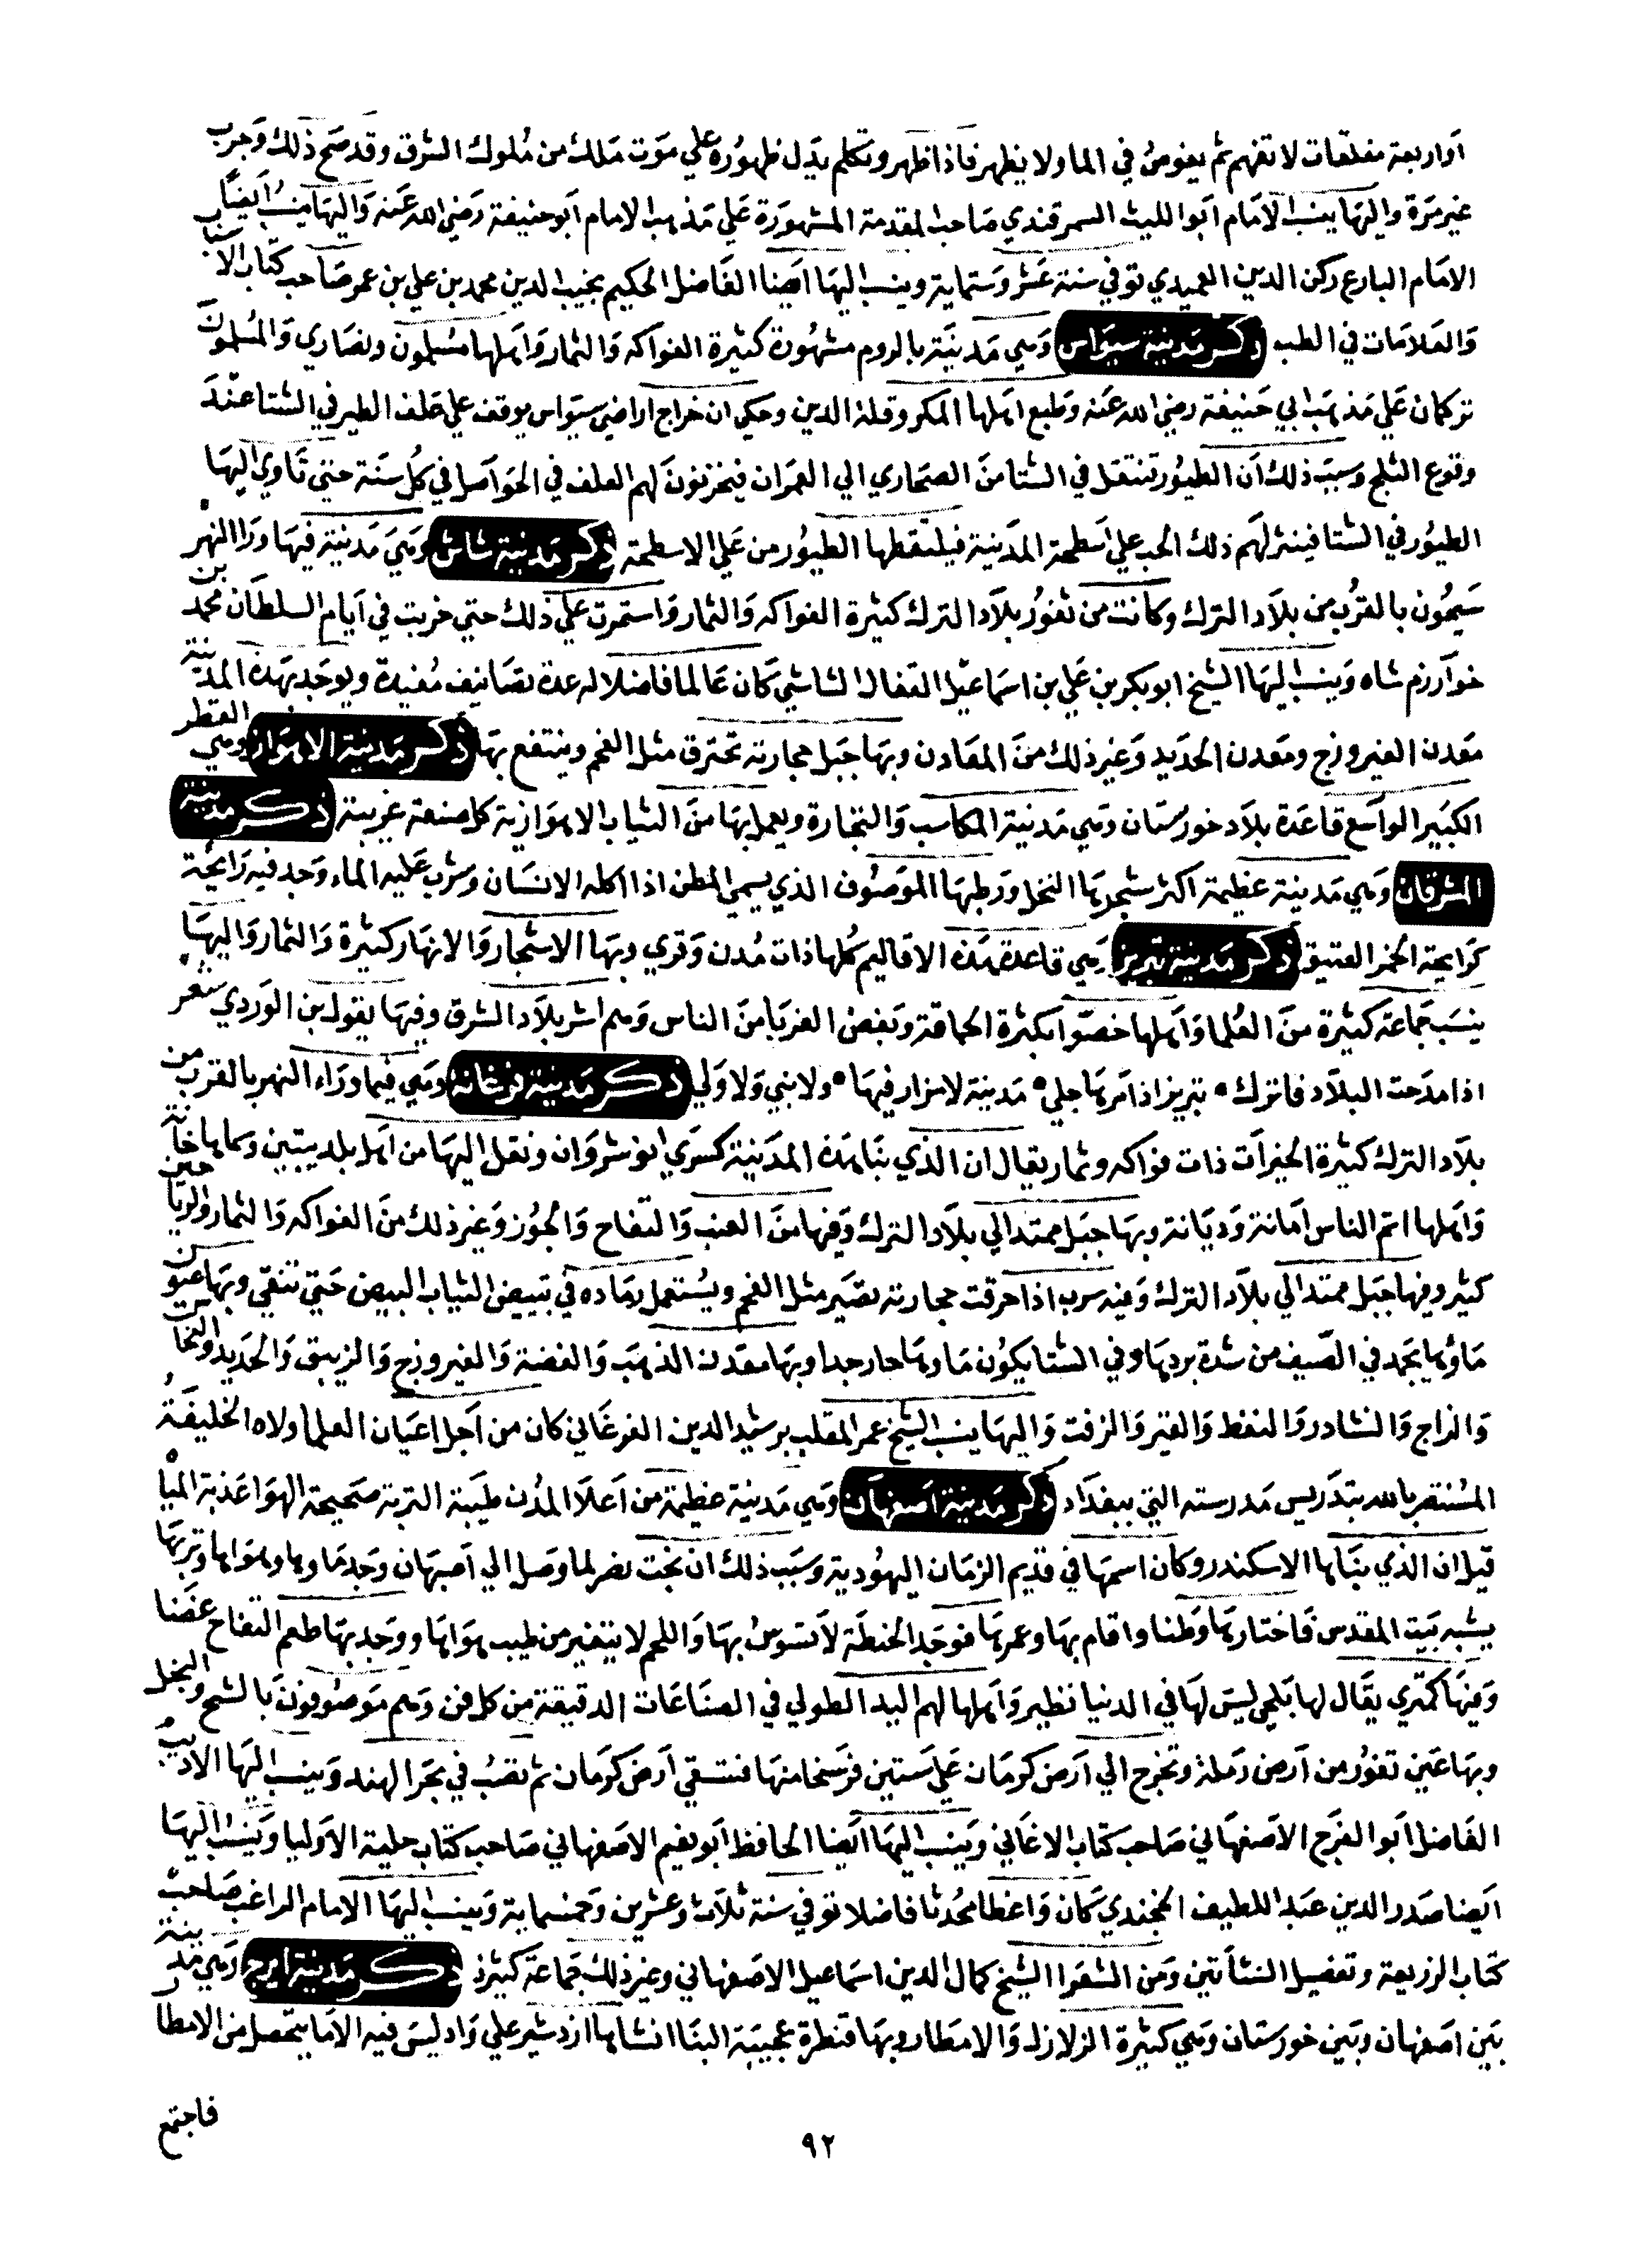 أو أربعة مقلقات لا تفهم ثم يغوص في الما ولا يظهر فاذا ظهر وتكلم يدل ظهوره علي موت ملك من ملوك الشرق وقد صح ذلك وجرب
غير مرة واليها ينسب الامام ابو الليث السمرقندي صاحب المقدمة المشهورة علي مذهب الامام ابو حنيفة رضي الله عنه واليها ينسب أيضًا
الامام البارع ركن الدين العميدي توفي سنة عشر وستماية وينسب اليها ايضا الفاضل الحكيم نجيب الدين محمد بن علي بن عمر صاحب كتاب الاسباب
والعلامات في الطب ذكر مدينة سيواس وهي مدينة بالروم مشهورة كثيرة الفواكه والثمار واهلها مسلمون ونصاري والمسلمون
تركمان علي مذهب ابي حنيفة رضي الله عنه وطبع اهلها المكر وقلة الدين وحكي ان خراج اراضي سيواس يوقف علي علف الطير في الشتا عند
وقوع الثلج وسبب ذلك أن الطيور تنتقل في الشتا من الصحاري الي العمران فيخزنون لهم العلف في الحواصل في كل سنة حتي تاوي اليها
الطيور في الشتا فينثر لهم ذلك الحب علي اسطحة المدينة فيلتقطها الطيور من علي الاسطحة ذكر مدينة شاش وهي مدينة فيها ورا النهر
سيحون بالقرب من بلاد الترك وكانت من ثغور بلاد الترك كثيرة الفواكه والثمار واستمرت علي ذلك حتي خربت في ايام السلطان محمد بن
خوارزم شاه وينسب اليها الشيخ ابو بكر بن علي بن اسماعيل القفال الشاشي كان عالما فاضلا له عدة تصانيف مفيدة ويوجد بهذه المدينة
معدن الفيروزج ومعدن الحديد وغير ذلك من المعادن وبها جبل حجارته تحترق مثل الفحم وينتفع بها ذكر مدينة الاهواز وهي القطر
الكبير الواسع قاعدة بلاد خورستان وهي مدينة المكاسب والتجارة ويعمل بها من الثياب الاهوازية كل صنعة غريبة ذكر مدينة
المشرقان وهي مدينة عظيمة اكثر شجرها النخل ورطبها الموصوف الذي يسمي المطن اذا اكله الانسان وشرب عليه الماء وجد فيه رايحة
كرايحة الخمر العتيق ذكر مدينة تبريز هي قاعدة هذه الاقاليم كلها ذات مدن وقري وبها الاشجار والانهار كثيرة والثمار واليها
ينسب جماعة كثيرة من العلما واهلها خصوا بكثرة الحماقة وبغض الغربا من الناس وهم اشر بلاد الشرق وفيها يقول بن الوردي شعر
اذا مدحت البلاد فاترك * تبريز اذ امرها جلي * مدينة لا مزار فيها * ولا نبي ولا ولي ذكر مدينة فرغانة وهي فيما وراء النهر بالقرب من
بلاد الترك كثيرة الخيرات ذات فواكه وثمار يقال ان الذي بنا هذه المدينة كسري انوشروان ونقل اليها من اهل بلد بيتين وسماها خانة
واهلها اتم الناس امانة وديانة وبها جبل ممتد الي بلاد الترك وفيها من العنب والتفاح والجوز وغير ذلك من الفواكه والثمار والرياحين
كثير وفيها جبل ممتد الي بلاد الترك وفيه سرب اذا حرقت حجارته تصير مثل الفحم ويستعمل رماده في تبييض الثياب البيض حتي تنقي وبها عيون
ماؤها يجمد في الصيف من شدة بردها وفي الشتا يكون ماوها حار جدا وبها معدن الذهب والفضة والفيروزج والزيبق والحديد والنحاس
والزاج والنشادر والنفط والقير والزفت واليها ينسب الشيخ عمر الملقب برشيد الدين الفرغاني كان من اجل اعيان العلما ولاه الخليفة
المستنصر بالله بتدريس مدرسته التي ببغداد ذكر مدينة اصفهان وهي مدينة عظيمة من اعلا المدن طيبة التربة صحيحة الهوا عذبة المياه
قيل ان الذي بناها الاسكندر وكان اسمها في قديم الزمان اليهودية وسبب ذلك ان بخت نصر لما وصل الي اصبهان وجد ماوها وهواها وتربتها
يشبه بيت المقدس فاختارها وطنا واقام بها وعمرها فوجد الحنطة لا تسوس بها واللحم لا يتغير من طيب هواها ووجد بها طعم التفاح غضنا
وفيها كمتري يقال لها بلجي ليس لها في الدنيا نظير واهلها لهم اليد الطولي في الصناعات الدقيقة من كل فن وهم موصوفون بالشح والبخل
وبها عين تغور من أرض رملة وتخرج الي أرض كرمان علي ستين فرسخا منها فتسقي أرض كرمان ثم تصب في بحر الهند وينسب اليها الاديب
الفاضل ابو الفرج الاصفهاني صاحب كتاب الاغاني وينسب اليها ايضا الحافظ ابو نعيم الاصفهاني صاحب كتاب حلية الاوليا وينسب اليها
ايضا صدر الدين عبد اللطيف الخجندي كان واعظا محدثا فاضلا توفي سنة ثلاث وعشرين وخمسماية وينسب اليها الامام الراغب صاحب
كتاب الزريعة وتفصيل النشأتين ومن الشعرا الشيخ كمال الدين اسماعيل الاصفهاني وغير ذلك جماعة كثيرة ذكر مدينة ايرج وهي مدينة
بين اصفهان وبين خورستان وهي كثيرة الزلازل والامطار وبها قنطرة عجيبة البنا انشاها ازدشير علي واد ليس فيه الا ما يتحصل من الامطار
فاجتمع
٩٢